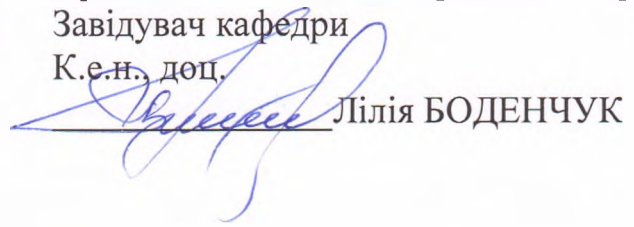 Завідувач кафедри
К.е.н., доц.
Лілія БОДЕНЧУК